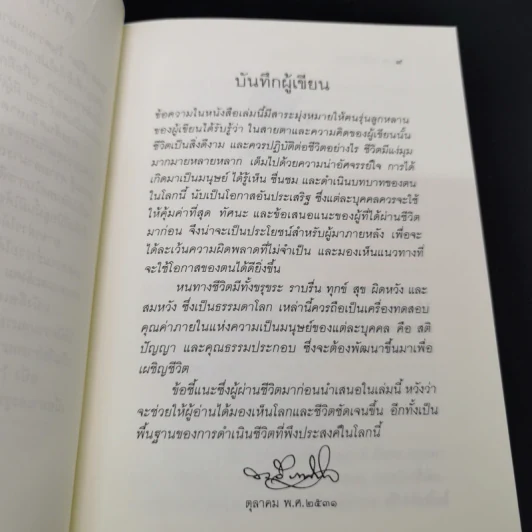 ๙
บันทึกผู้เขียน
ข้อความในหนังสือเล่มนี้มีสาระมุ่งหมายให้คนรุ่นลูกหลาน
ของผู้เขียนได้รับรู้ว่า ในสายตาและความคิดของผู้เขียนนั้น
ชีวิตเป็นสิ่งดีงาม และควรปฏิบัติต่อชีวิตอย่างไร ชีวิตมีแง่มุม
มากมายหลายหลาก เต็มไปด้วยความน่าอัศจรรย์ใจ การได้
เกิดมาเป็นมนุษย์ ได้รู้เห็น ชื่นชม และดำเนินบทบาทของตน
ในโลกนี้ นับเป็นโอกาสอันประเสริฐ ซึ่งแต่ละบุคคลควรจะใช้
ให้คุ้มค่าที่สุด ทัศนะ และข้อเสนอแนะของผู้ที่ได้ผ่านชีวิต
มาก่อน จึงน่าจะเป็นประโยชน์สำหรับผู้มาภายหลัง เพื่อจะ
ได้ละเว้นความผิดพลาดที่ไม่จำเป็น และมองเห็นแนวทางที่
จะใช้โอกาสของตนได้ดียิ่งขึ้น
หนทางชีวิตมีทั้งขรุขระ ราบรื่น ทุกข์ สุข ผิดหวัง และ
สมหวัง ซึ่งเป็นธรรมดาโลก เหล่านี้ควรถือเป็นเครื่องทดสอบ
คุณค่าภายในแห่งความเป็นมนุษย์ของแต่ละบุคคล คือ สติ
ปัญญา และคุณธรรมประกอบ ซึ่งจะต้องพัฒนาขึ้นมาเพื่อ
เผชิญชีวิต
ข้อชี้แนะซึ่งผู้ผ่านชีวิตมาก่อนนำเสนอในเล่มนี้ หวังว่า
จะช่วยให้ผู้อ่านได้มองเห็นโลกและชีวิตชัดเจนขึ้น อีกทั้งเป็น
พื้นฐานของการดำเนินชีวิตที่พึงประสงค์ในโลกนี้
ตุลาคม พ.ศ.๒๕๓๑